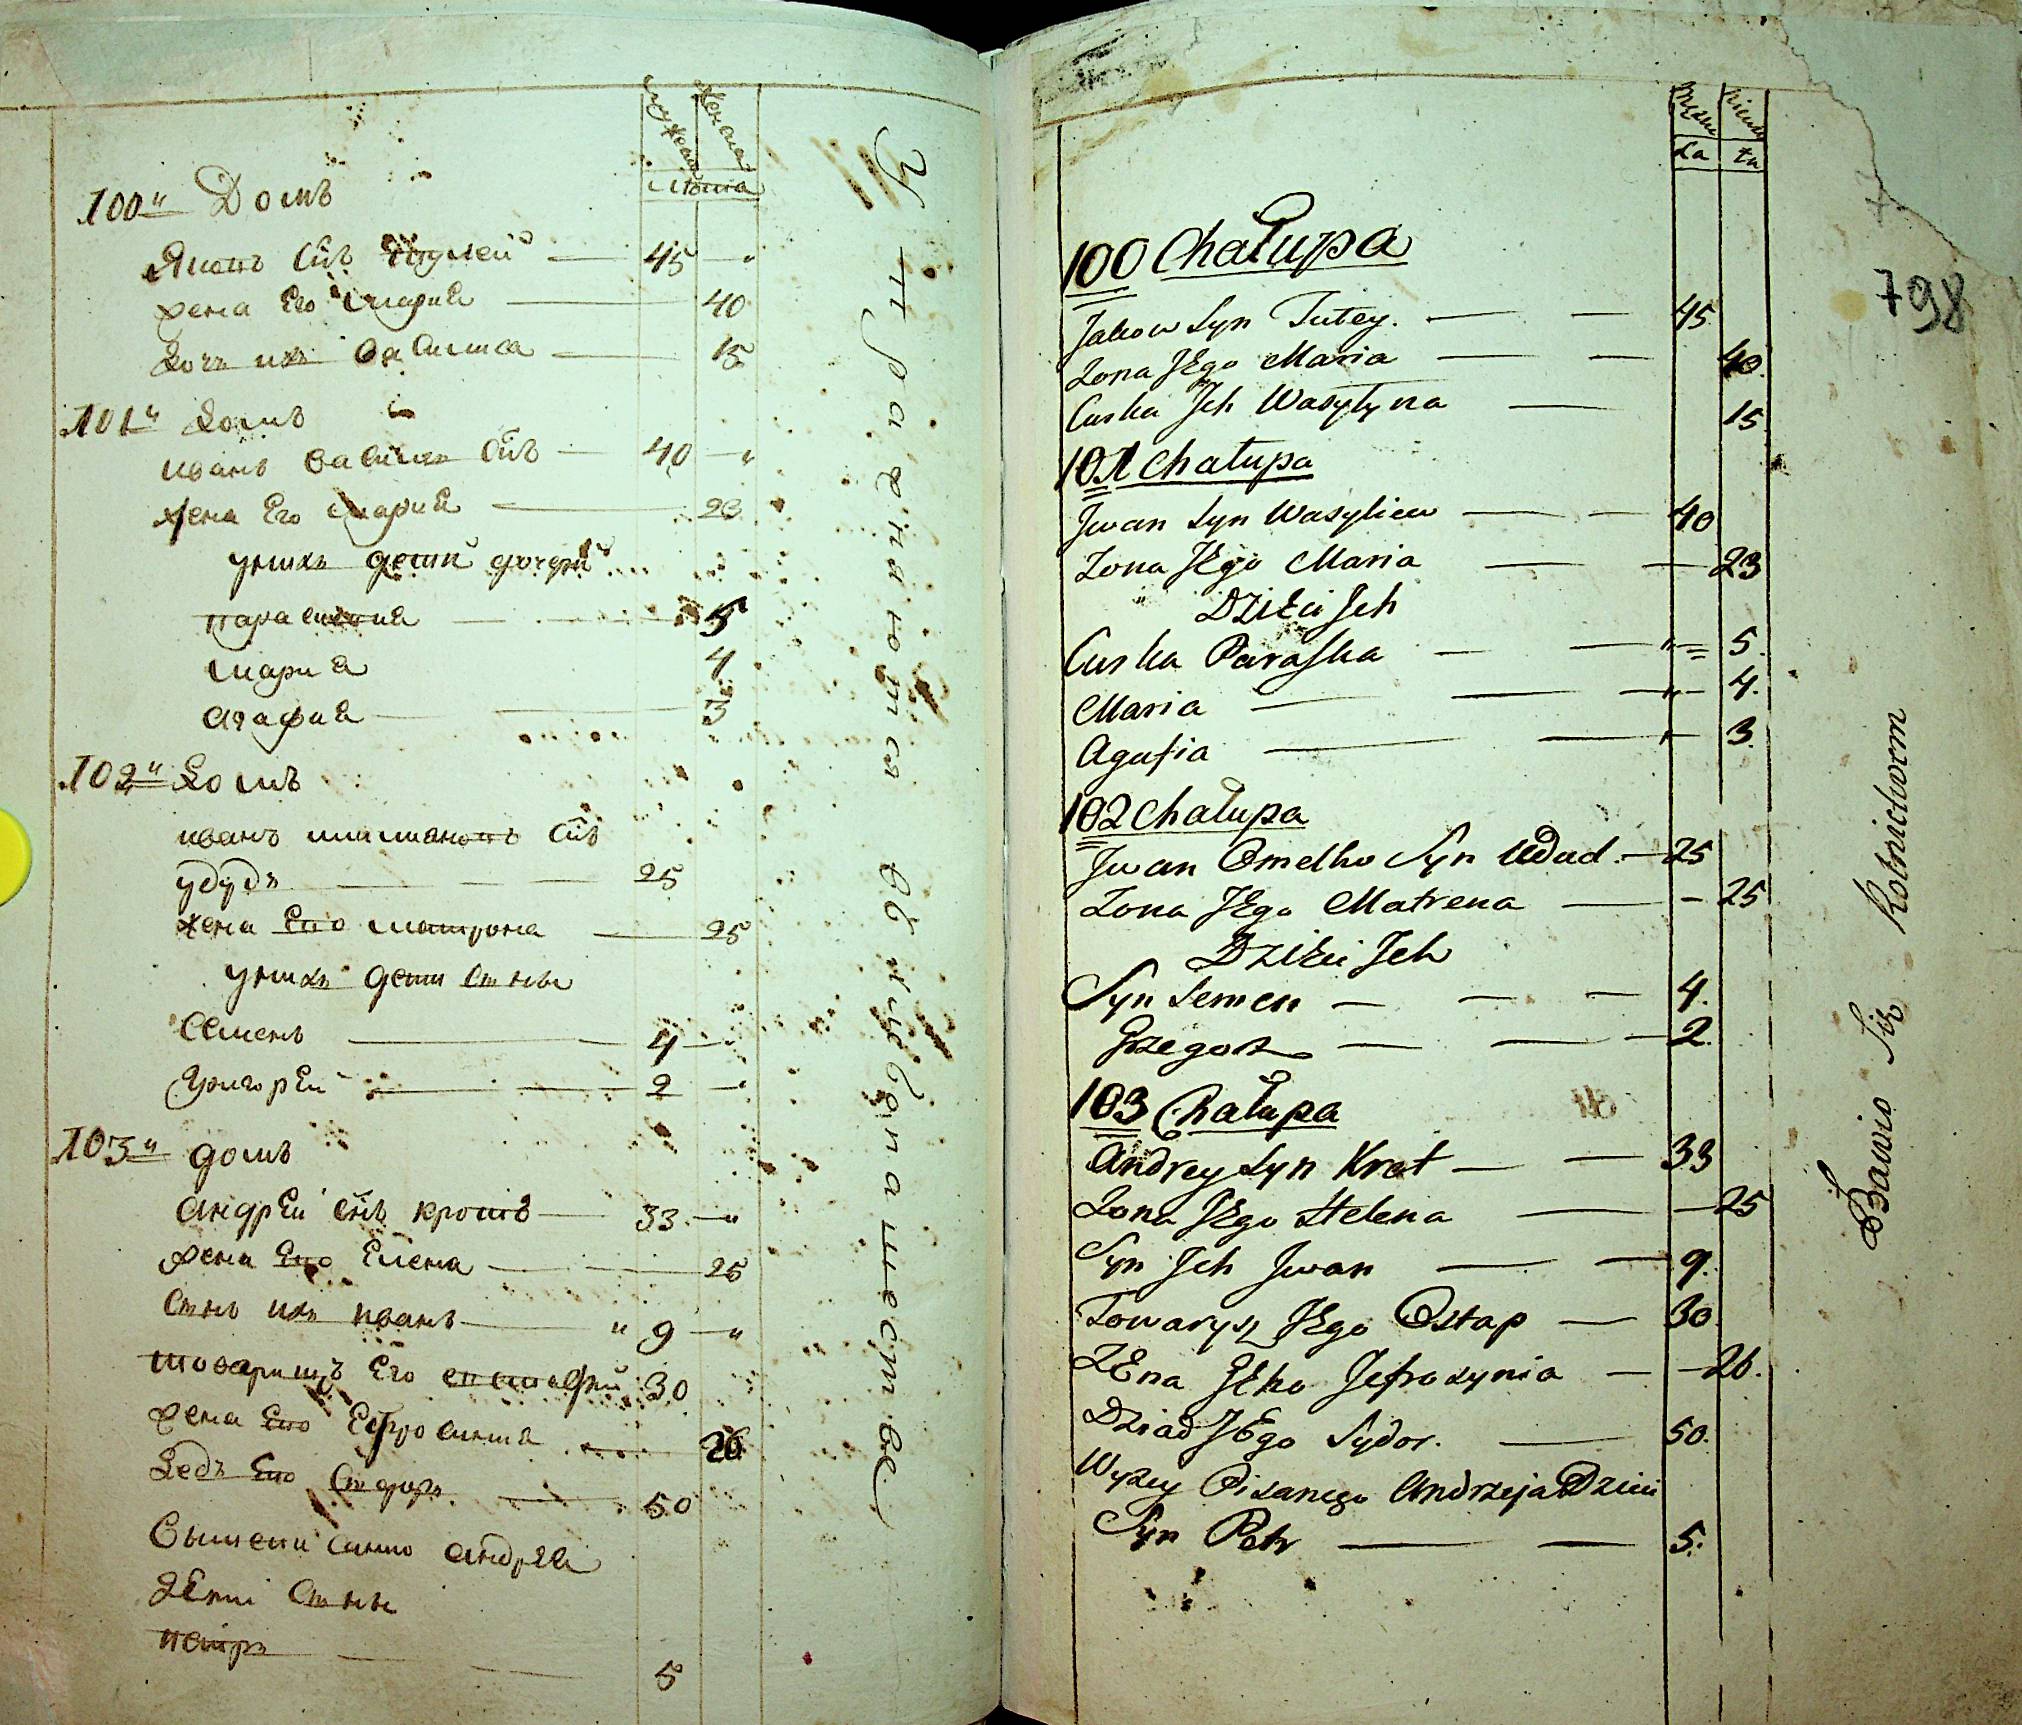 мужска женска
лѣта
100" Домъ
Яковъ Сн҃ъ — 45 — "
жена Его Мария — 40
Дочъ ихъ Василиса — 15
101" Домъ
иванъ василиев Сн҃ъ — 40 — "
жена Его Мария — 23
унихъ дети дочери
параскевия — 5
Мария — 4
Агафия — 3
102" Домъ
иванъ Сн҃ъ
удудъ — 25
жена Его матрона — 25
унихъ дети Сыны
Семенъ — 4 — "
Григорей — 2 — "
103" домъ
Андрей Сн҃ъ кротъ — 33 — "
жена Его Елена — 25
Сынъ ихъ иванъ — " 9 — "
товарищъ Его 30
жена Его Ефросиния 26
Дедъ Его Сидоръ — 50
Вышеписанного андрея
дети Сыны
петръ — 5
Упражняются в хлебопашестве
Męzka Niewia
La ta
798
100 Chałupa
Jakow Syn Tutey. — — 45
Zona JEgo Maria — — 40.
Curka Jch Wasylyna — 15.
101 Chałupa
Jwan Syn Wasyliew — — 40
Zona JEgo Maria — — 23
DziEci Jch
Curka Paraska — — " = 5.
Maria — — " — 4.
Agafia — — " — 3.
102 Chałupa
Jwan Omelko Syn Udud. — 25
Zona JEgo Matrena — — 25
DziEci Jch
Syn Semen — — — 4.
Grzegorz — — — 2.
103 Chałupa
Andrey Syn Krot — — 33
Zona JEgo Helena — — 25
Syn Jch Jwan — — 9.
Towarysz JEgo Ostap — 30
ZEna JEho Jefrosynia — — 26.
Dziad JEgo Sydor. — 50.
Wyzey Pisanego Andrzeja Dzieci
Syn Petr — — 5.
Bawio Się Rolnictwem